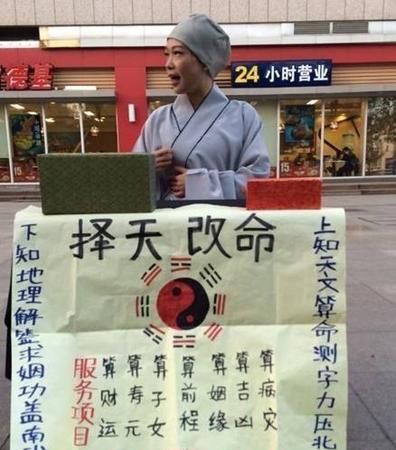 德基
24小时营业
择天改命
上知天文算命测字力压北
下知地理解签求姻功盖南
服务项目
算财运
算寿元
算子女
算前程
算姻缘
算吉凶
算病灾